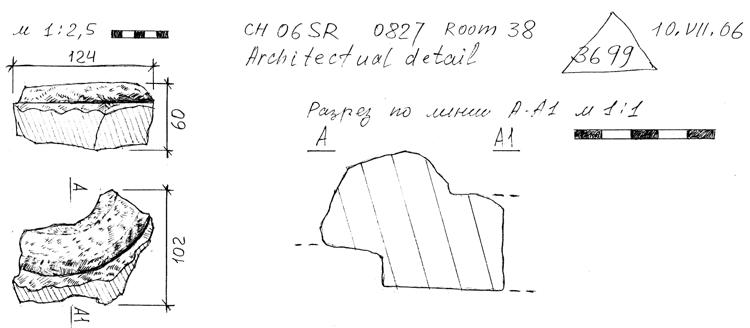 м 1:2,5
CH 06SR 0827 Room 38
Architectual detail
3699
10.VII.06
124
60
Разрез по линии А-А1 м 1:1
А
А1
А
102
А1